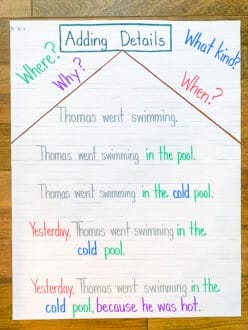 Adding Details
Where?
Why?
What kind?
When?
Thomas went swimming.
Thomas went swimming in the pool.
Thomas went swimming in the cold pool.
Yesterday, Thomas went swimming in the
cold pool.
Yesterday, Thomas went swimming in the
cold pool, because he was hot.